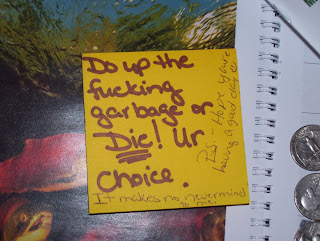 Do up the
fucking
garbage or
Die! Ur
choice.
It makes no nevermind
to me!
PS - Hope you're
having a good day